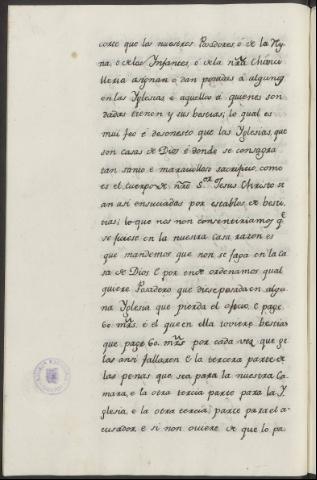 corte que los nuestros Posadores, é de la Rey
na, é de los Infantes, é de la nrã Chanci
lleria asignan o dan posadas á algunos
en las Yglesias é aquellos á quienes son
dadas tienen y sus bestias; lo qual es
mui feo é desonesto que las Yglesias, que
son casas de Dios é donde se consagra
tan santo é maravilloso sacrificio, como
es el cuerpo de nrõ S.ᵒʳ Jesus Christo se
an así ensuciadas por establos de besti
tias; lo que nos non consentiriamos q.ᵉ
se ficiese en la nuestra casa, razon es
que mandemos que non se faga en la Ca
sa de Dios. E por ende ordenamos qual
quiere Posadero que diese posada en algu
na Yglesia que pierda el oficio, é page
60. mrs. é el que en ella toviere bestias
que page 60. mrs por cada vez que ge
los ansi fallaren é la tercera parte de
las penas que sea para la nuestra Ca
mara, e la otra tercia parte para la Y
glesia, e la otra tercia parte para el a
cusador é si non oviere de que lo pa